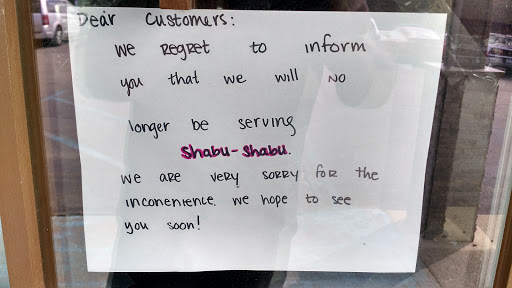 Dear Customers:
We Regret to inform
you that we will no
longer be serving
Shabu-Shabu.
We are very sorry for the
inconenience. We hope to see
you soon!